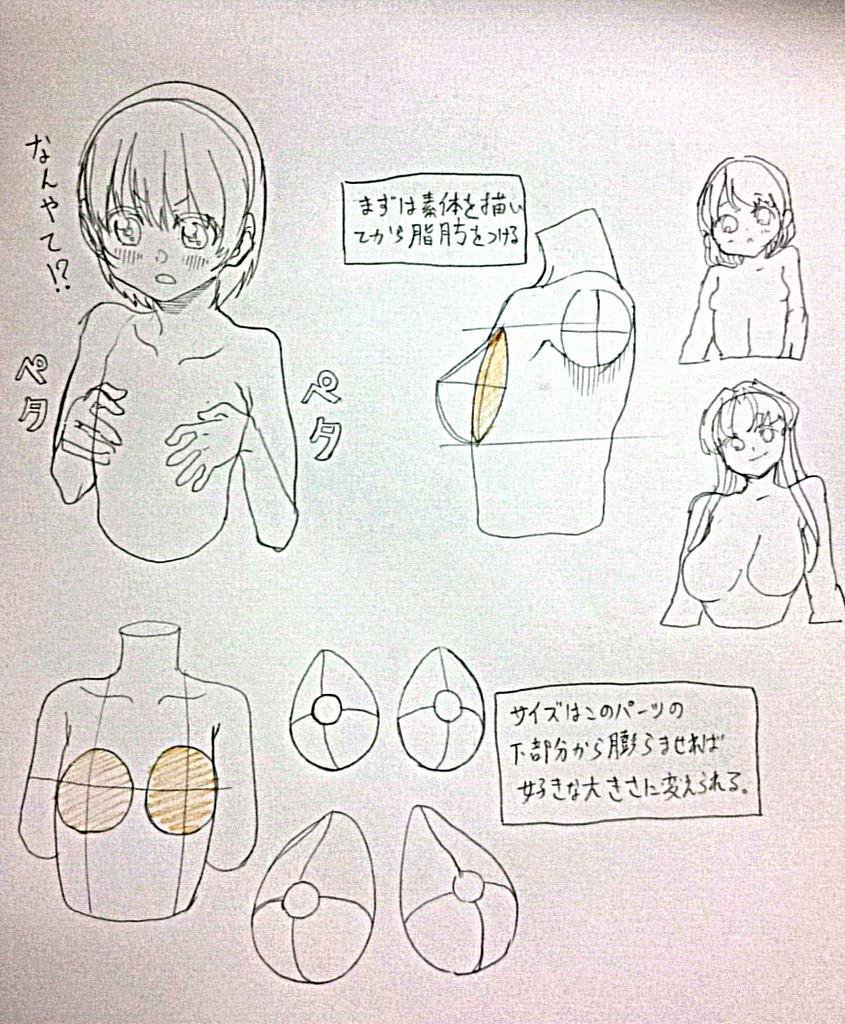 なんやて!?
ペタ
ペタ
まずは素体を描い
てから脂肪をつける
サイズはこのパーツの
下部分から膨らませれば
好きな大きさに変えられる。